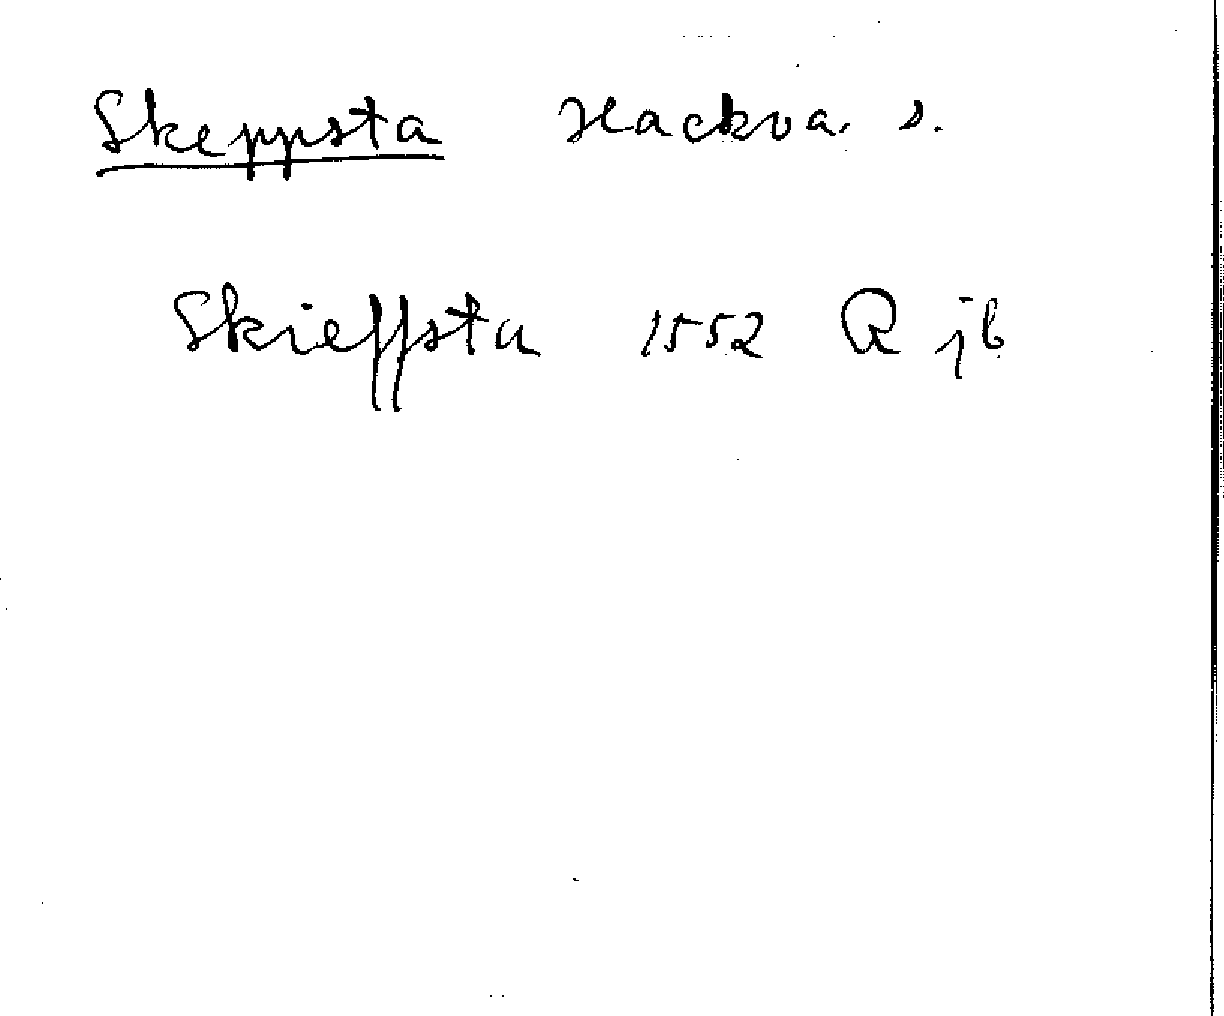 Skeppsta Hackva. s.
Skieffsta 1552 R jb